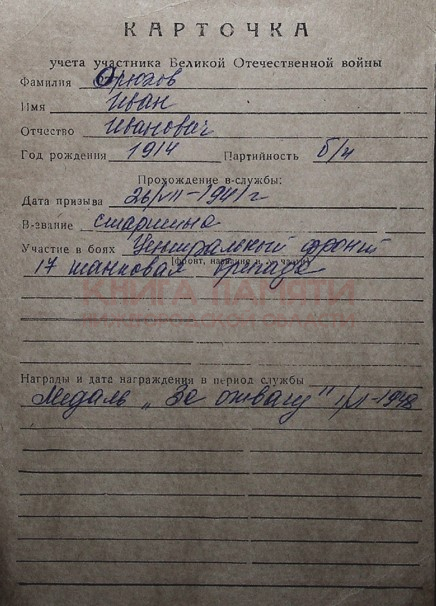 КАРТОЧКА
учета участника Великой Отечественной войны
Фамилия Орюхов
Имя Иван
Отчество Иванович
Год рождения 1914 Партийность б/п
Прохождение в-службы:
Дата призыва 26/VII-1941 г
В-звание старшина
Участие в боях Центральный фронт
(фронт, название и № части)
17 танковая бригада
КНИГА ПАМЯТИ
Награды и дата награждения в период службы
Медаль „За отвагу"